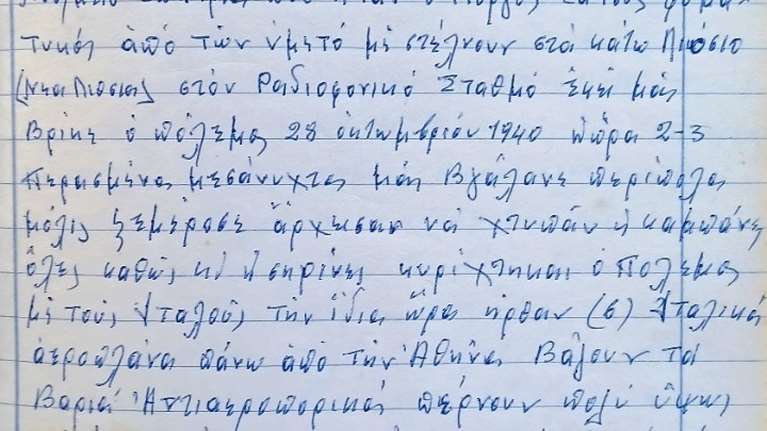 τικός ἀπό τὼν ὑμετό μὲ στέλνουν στά κάτω Λιόσιο
(Νεα Λιοσια) στόν Ραδιοφονικό Σταθμό ἐκεί μάς
Βρίκε ὁ πόλεμος 28 ὀκτωμβρίου 1940 ἡ ὥρα 2-3
περασμένα μεσάνυχτα μάς Βγάλανε περίπολο
μόλις ξεμέροσε ἄρχεισαν νά χτυπάν ἡ καμπάνες
ὅλες καθώς κι ἡ σηρίνες κυρίχτηκαι ὁ Πόλεμος
μέ τούς Ιταλούς την ἴδια ὥρα ηρθαν (6) Ιταλικά
ἀεροπλάνα πάνω ἀπό τήν Ἀθηνα Βάζουν τά
Βαριά Ἀντιαεροπορικά πέρνουν πολύ ὕψως